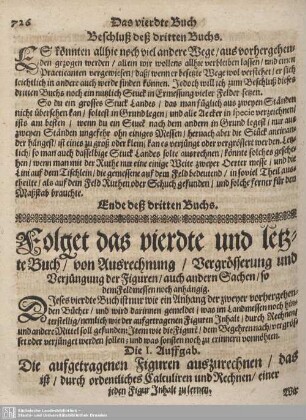 726 Das vierdte Buch
Beschluß deß dritten Buchs.
ES könnten allhie noch viel andere Wege / aus vorhergehen-
den gezogen werden / allein wir wollens allhie verbleiben lassen / und einen
Practicanten vergewissen / daß / wenn er besetzte Wege wol verstehet / er sich
leichtlich in andere auch werde finden können. Jedoch will ich zum Beschluß dieses
dritten Buchs noch ein nützlich Stück in Ermessung vieler Felder setzen.
So du ein grosses Stuck Landes / das man füglich aus zweyen Ständen
nicht übersehen kan / soltest in Grund legen / und alle Aecker in specie verzeichnen /
ists am besten / wenn du ein Stuck nach dem andern in Grund legest / nur aus
zweyen Ständen ungefehr ohn einiges Messen / hernach aber die Stück aneinan-
der hängest / ist eines zu groß oder klein / kan es verjüngt oder vergrössert werden.
so man auch dasselbige Stuck Landes solte ausrechnen / könnte solches gesche-
hen / wenn man nur der Ruthe nach eine einige Weite zweyer Oerter messe / und die
Lini auf dem Tischlein / die gemessene auf dem Feld bedeutend / in soviel Theil aus-
theilte / als auf dem Feld Ruthen oder Schuch gefunden / und solche ferner für den
Maßstab brauchte.
Ende deß dritten Buchs.
Folget das vierdte und letz-
te Buch / von Ausrechnung / Vergrösserung und
Verjüngung der Figuren / auch andern Sachen / so
dem Feldmessen noch anhängig.
Dieses vierdte Buch ist nur wie ein Anhang der zweyer vorhergehen-
den Bücher / und wird darinnen gemeldet / was im Landmessen noch hin-
derstellig / nemlich wie der aufgetragenen Figuren Inhalt / durch Rechnen /
und andere Mittel soll gefunden: Item wie die Figur / dem Begehren nach / vergrös-
set oder verjünget werden sollen; und was sonsten noch zu erinnern vonnöthen.
Die I. Auffgab.
Die aufgetragenen Figuren auszurechnen / das
ist / durch ordentliches Calculiren und Rechnen / einer
jeden Figur Inhalt zu lernen.